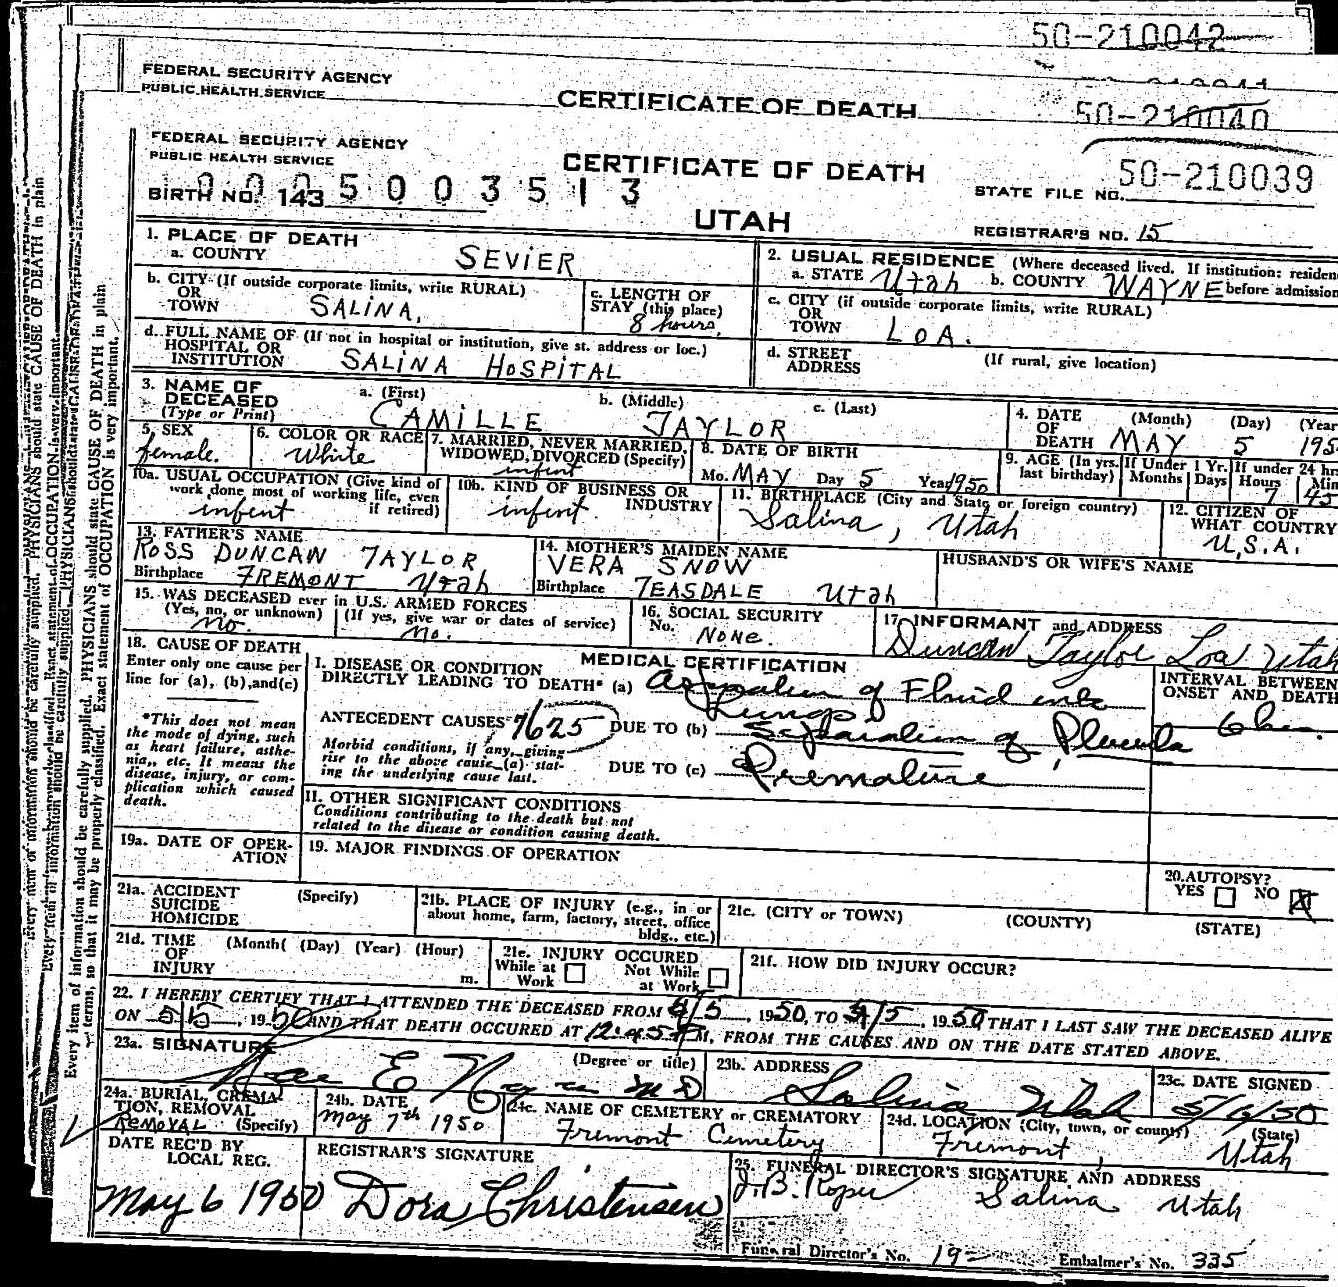 50-210042
FEDERAL SECURITY AGENCY
PUBLIC HEALTH SERVICE
CERTIFICATE OF DEATH
50-210040
FEDERAL SECURITY AGENCY
PUBLIC HEALTH SERVICE
CERTIFICATE OF DEATH
STATE FILE NO. 50-210039
BIRTH NO. 143 5003513
UTAH
REGISTRAR'S NO. 15
1. PLACE OF DEATH
a. COUNTY SEVIER
2. USUAL RESIDENCE (Where deceased lived. If institution: residen
a. STATE Utah b. COUNTY WAYNE before admission
b. CITY (If outside corporate limits, write RURAL)
OR
TOWN SALINA,
c. LENGTH OF
STAY (this place)
8 hours,
c. CITY (if outside corporate limits, write RURAL)
OR
TOWN LOA.
d. FULL NAME OF (If not in hospital or institution, give st. address or loc.)
HOSPITAL OR
INSTITUTION SALINA HOSPITAL
d. STREET
ADDRESS
(If rural, give location)
3. NAME OF
DECEASED
(Type or Print)
a. (First) b. (Middle) c. (Last)
CAMILLE TAYLOR
4. DATE
OF
DEATH
(Month) (Day) (Year
MAY 5 195
5. SEX
female.
6. COLOR OR RACE
White
7. MARRIED, NEVER MARRIED,
WIDOWED, DIVORCED (Specify)
infint
8. DATE OF BIRTH
Mo. MAY Day 5 Year 1950
9. AGE (In yrs.
last birthday)
If Under 1 Yr.
Months Days
If under 24 hr
Hours Min
7 45
10a. USUAL OCCUPATION (Give kind of
work done most of working life, even
if retired)
infint
10b. KIND OF BUSINESS OR
INDUSTRY
infint.
11. BIRTHPLACE (City and State or foreign country)
Salina, Utah
12. CITIZEN OF
WHAT COUNTRY
U.S.A.
13. FATHER'S NAME
ROSS DUNCAN TAYLOR
Birthplace FREMONT Utah
14. MOTHER'S MAIDEN NAME
VERA SNOW
Birthplace TEASDALE Utah
HUSBAND'S OR WIFE'S NAME
15. WAS DECEASED ever in U.S. ARMED FORCES
(Yes, no, or unknown) (If yes, give war or dates of service)
no. no.
16. SOCIAL SECURITY
No. NONE
17. INFORMANT and ADDRESS
Duncan Taylor Loa Utah
18. CAUSE OF DEATH
Enter only one cause per
line for (a), (b), and (c)
MEDICAL CERTIFICATION
I. DISEASE OR CONDITION
DIRECTLY LEADING TO DEATH* (a) Aspiration of Fluid into
Lungs
INTERVAL BETWEEN
ONSET AND DEATH
*This does not mean
the mode of dying, such
as heart failure, asthe-
nia, etc. It means the
disease, injury, or com-
plication which caused
death.
ANTECEDENT CAUSES 7625 DUE TO (b) Separation of Placenta
Morbid conditions, if any, giving
rise to the above cause (a) stat-
ing the underlying cause last.
DUE TO (c) Premature
II. OTHER SIGNIFICANT CONDITIONS
Conditions contributing to the death but not
related to the disease or condition causing death.
19a. DATE OF OPER-
ATION
19. MAJOR FINDINGS OF OPERATION
20. AUTOPSY?
YES NO X
21a. ACCIDENT
SUICIDE
HOMICIDE
(Specify)
21b. PLACE OF INJURY (e.g., in or
about home, farm, factory, street, office
bldg., etc.)
21c. (CITY or TOWN) (COUNTY) (STATE)
21d. TIME
OF
INJURY
(Month( (Day) (Year) (Hour)
m.
21e. INJURY OCCURED
While at Work Not While at Work
21f. HOW DID INJURY OCCUR?
22. I HEREBY CERTIFY THAT I ATTENDED THE DECEASED FROM 5/5, 1950, TO 5/5, 1950 THAT I LAST SAW THE DECEASED ALIVE
ON 5/5, 1950 AND THAT DEATH OCCURED AT 12:45 P.M, FROM THE CAUSES AND ON THE DATE STATED ABOVE.
23a. SIGNATURE (Degree or title)
Rae E Noyes MD
23b. ADDRESS
Salina Utah
23c. DATE SIGNED
5/6/50
24a. BURIAL, CREMA-
TION, REMOVAL
(Specify)
REMOVAL
24b. DATE
May 7th 1950
24c. NAME OF CEMETERY or CREMATORY
Fremont Cemetery
24d. LOCATION (City, town, or county) (State)
Fremont, Utah
DATE REC'D BY
LOCAL REG.
May 6 1950
REGISTRAR'S SIGNATURE
Dora Christensen
25. FUNERAL DIRECTOR'S SIGNATURE AND ADDRESS
J.B. Roper Salina Utah
Funeral Director's No. 19 Embalmer's No. 335
Every item of information should be carefully supplied. PHYSICIANS should state CAUSE OF DEATH in plain
terms, so that it may be properly classified. Exact statement of OCCUPATION is very important.